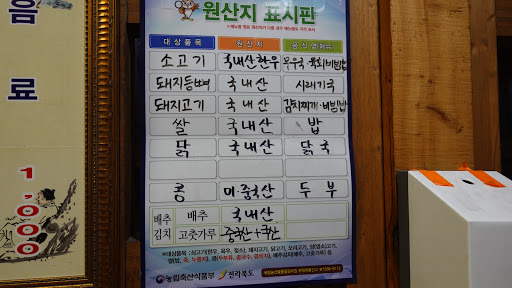 음
료
1,000
원산지 표시판
대상품목 원산지 음식명(메뉴)
소고기 국내산한우 육회비빔밥
돼지등뼈 국내산 시래기국
돼지고기 국내산 김치찌개·비빔밥
쌀 국내산 밥
닭 국내산 닭국
콩 미·중국산 두부
배추 배추 국내산
김치 고춧가루 중국산+국산
농림축산식품부 전라북도